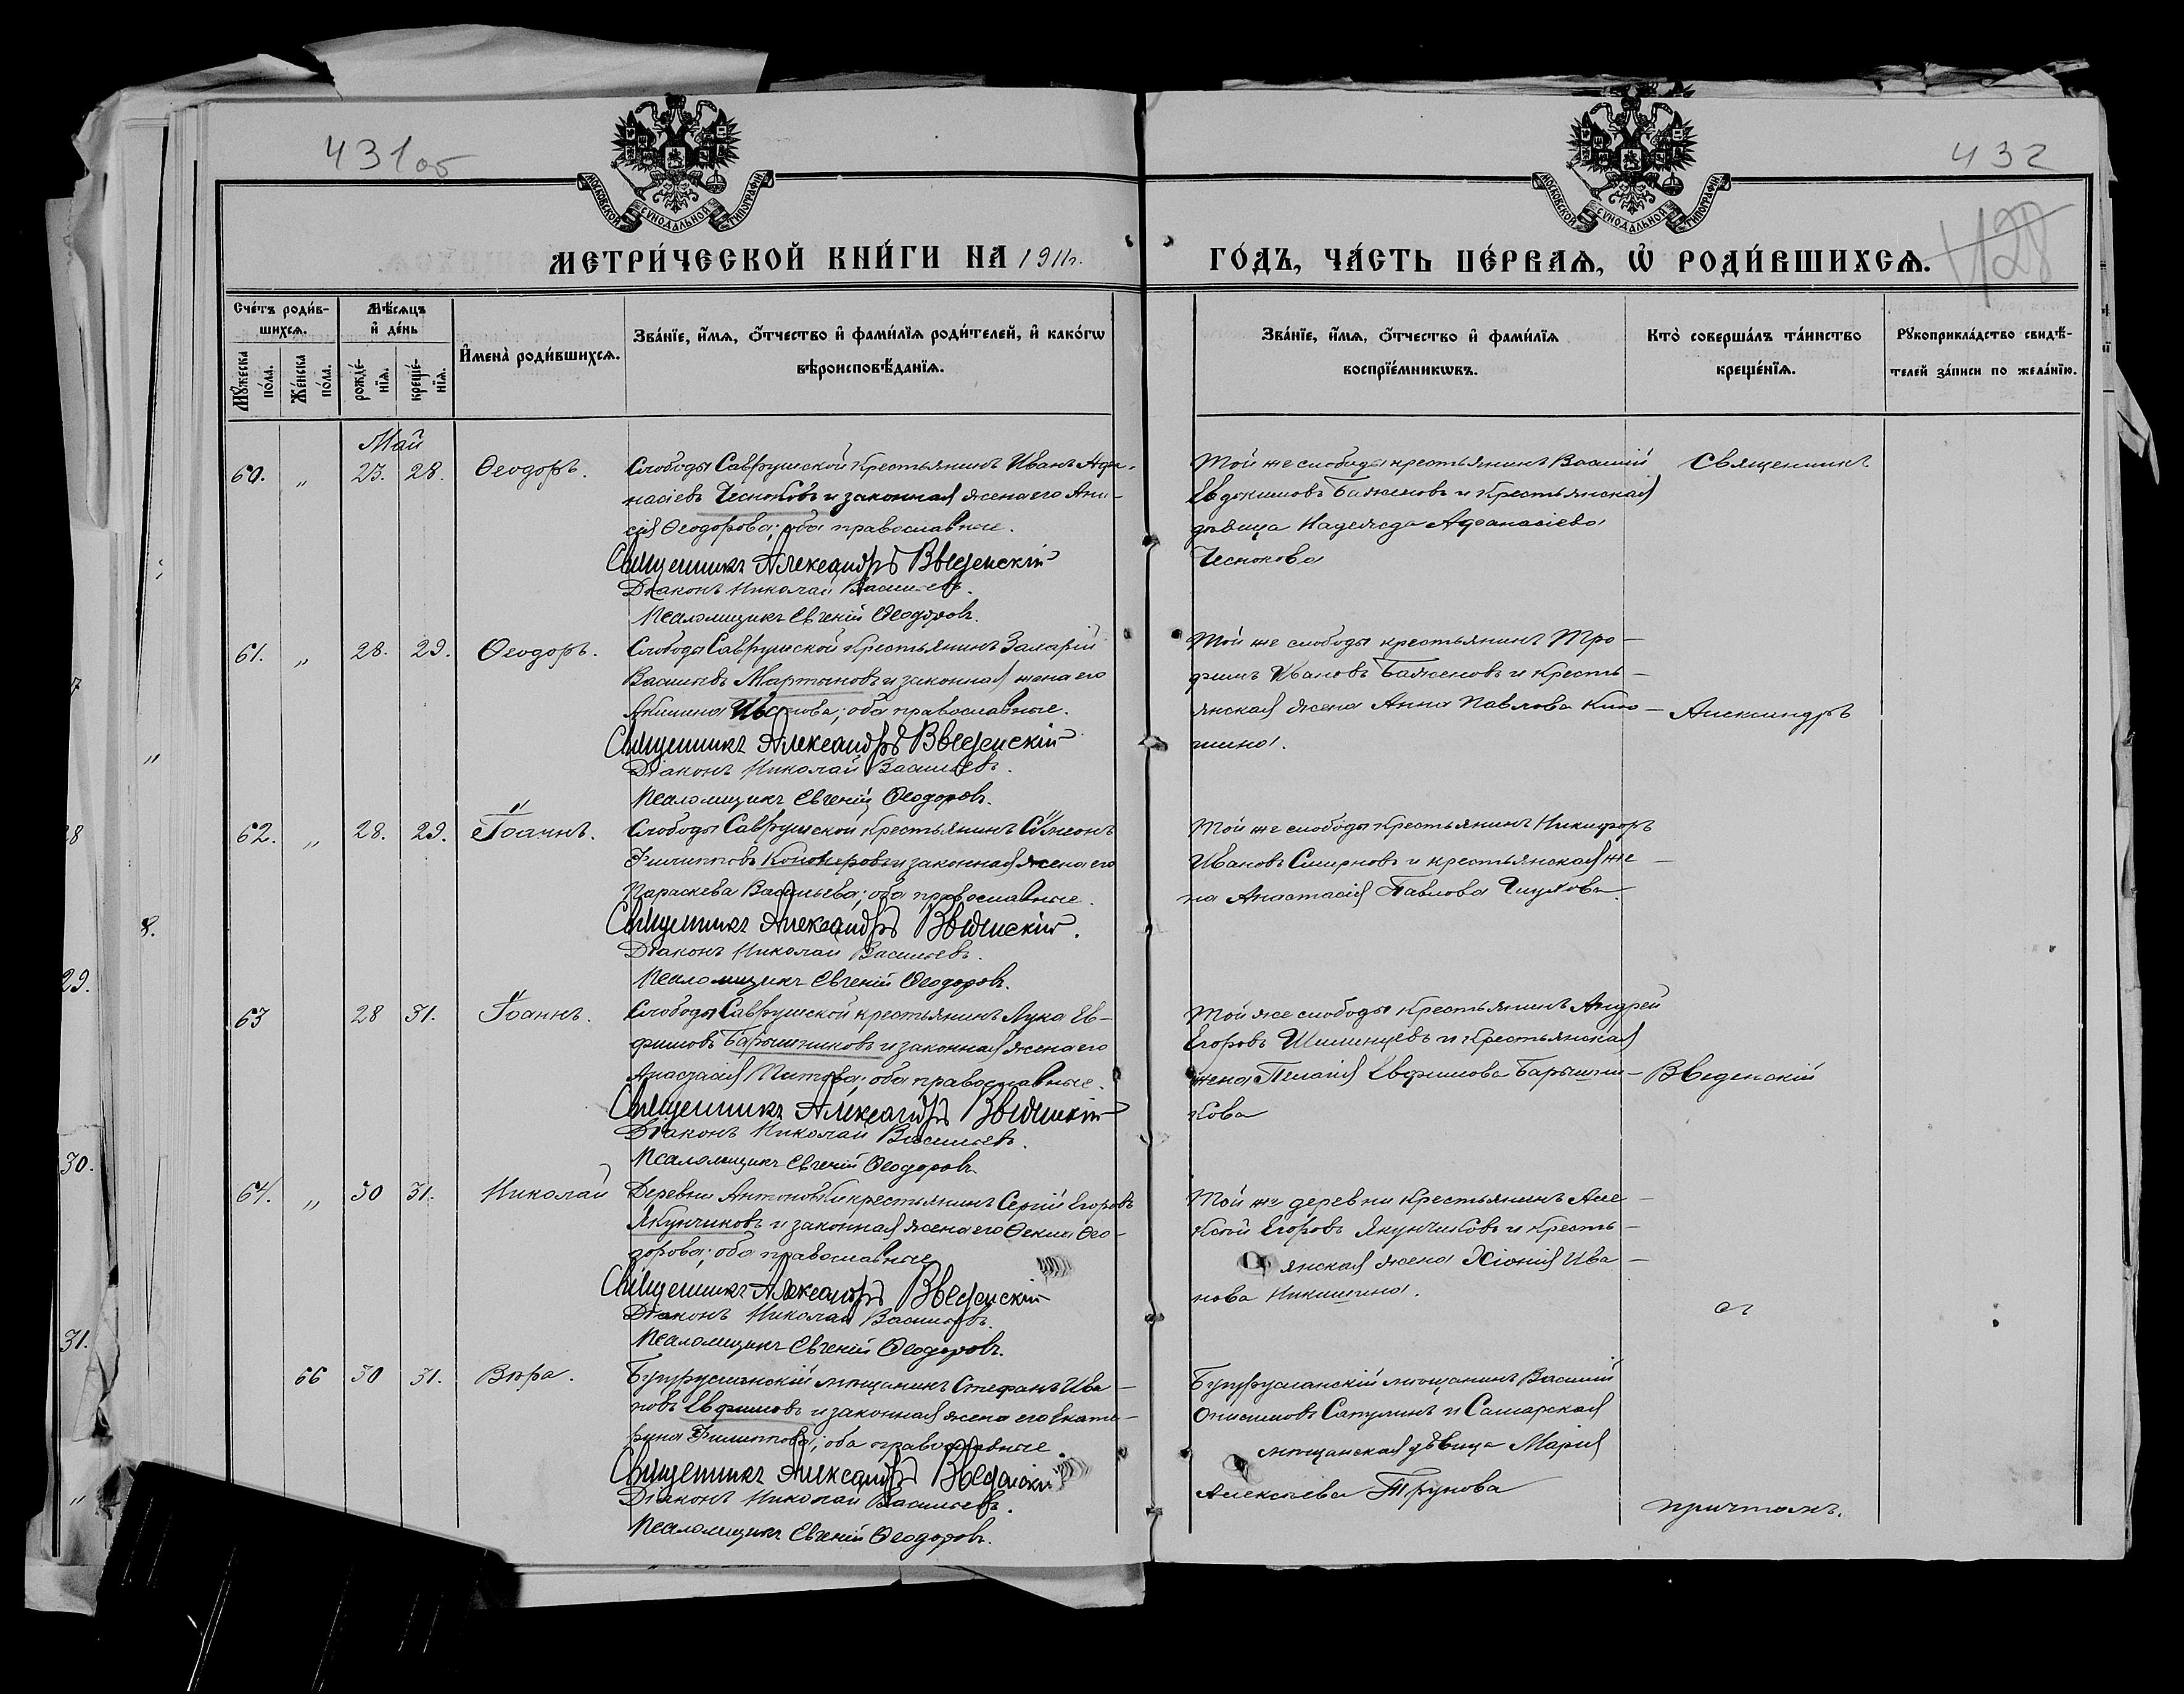 431об
432
128
МОСКОВСКОЙ СѴНОДАЛЬНОЙ ТИПОГРАФІИ
МОСКОВСКОЙ СѴНОДАЛЬНОЙ ТИПОГРАФІИ
МЕТРИ́ЧЕСКОЙ КНИ́ГИ НА 1911г.
ГО́ДЪ, ЧА́СТЬ ПЕ́РВАѦ, Ѡ҆ РОДИ́ВШИХСѦ.
Сче́тъ роди́в-
шихсѧ.
Мѣ́сѧцъ
и҆ де́нь
Мꙋ́жеска по́ла.
Же́нска по́ла.
рожде́-нїѧ.
креще́-нїѧ.
И҆мена̀ роди́вшихсѧ.
Зва́нїе, и҆́мѧ, ѻ҆́тчество и҆ фами́лїѧ роди́телей, и҆ како́гѡ
вѣроисповѣ́данїѧ.
Зва́нїе, и҆́мѧ, ѻ҆́тчество и҆ фами́лїѧ
воспрїе́мникѡвъ.
Кто̀ соверша́лъ та́инство
креще́нїѧ.
Рꙋкоприкла́дство свидѣ́-
телей за́писи по жела́нїю.
Май
60. „ 23. 28. Ѳеодоръ.
Слободы Саврушской крестьянинъ Иванъ Афа-
насіевъ Чесноковъ и законная жена его Ани-
сія Ѳеодорова; оба православные.
Священникъ Александръ Введенскій
Діаконъ Николай Васильевъ.
Псаломщикъ Евгеній Ѳеодоровъ.
Той же слободы крестьянинъ Василій
Евдокимовъ Баженовъ и крестьянская
дѣвица Надежда Афанасіева
Чеснокова
Священникъ
61. „ 28. 29. Ѳеодоръ.
Слободы Саврушской крестьянинъ
Васильевъ Мартыновъ и законная жена его
Акилина Иванова; оба православные.
Священникъ Александръ Введенскій
Діаконъ Николай Васильевъ.
Псаломщикъ Евгеній Ѳеодоровъ.
Той же слободы крестьянинъ Тро-
фимъ Ивановъ Баженовъ и кресть-
янская жена Анна Павлова
шина.
Александръ
62. „ 28. 29. Іоаннъ.
Слободы Саврушской крестьянинъ Сѵмеонъ
Филипповъ и законная жена его
Параскева Васильева; оба православные.
Священникъ Александръ Введенскій.
Діаконъ Николай Васильевъ.
Псаломщикъ Евгеній Ѳеодоровъ.
Той же слободы крестьянинъ Никифоръ
Ивановъ Смирновъ и крестьянская же-
на Анастасія Павлова
63 28 31. Іоаннъ.
Слободы Саврушской крестьянинъ Лука Ев-
фимовъ Барышниковъ и законная жена его
Анастасія Титова; оба православные.
Священникъ Александръ Введенскій
Діаконъ Николай Васильевъ.
Псаломщикъ Евгеній Ѳеодоровъ.
Той же слободы крестьянинъ Андрей
Егоровъ и крестьянская
жена Пелагія Евфимова Барышни-
кова
Введенскій
64. „ 30 31. Николай
Деревни Антоновки крестьянинъ Сергій Егоровъ
Якунчиковъ и законная жена его Ѳекла Ѳео-
дорова; оба православные
Священникъ Александръ Введенскій
Діаконъ Николай Васильевъ.
Псаломщикъ Евгеній Ѳеодоровъ.
Той же деревни крестьянинъ Але-
ксѣй Егоровъ Якунчиковъ и кресть-
янская жена Хіонія Ива-
нова Никишина.
съ
66 30 31. Вѣра.
Бугурусланскій мѣщанинъ Стефанъ Ива-
новъ Евфимовъ и законная жена его Екате-
рина Филиппова; оба православные.
Священникъ Александръ Введенскій
Діаконъ Николай Васильевъ.
Псаломщикъ Евгеній Ѳеодоровъ.
Бугурусланскій мѣщанинъ Василій
Онисимовъ Сапулинъ и Самарская
мѣщанская дѣвица Марія
Алексѣева Трунова
причтомъ.